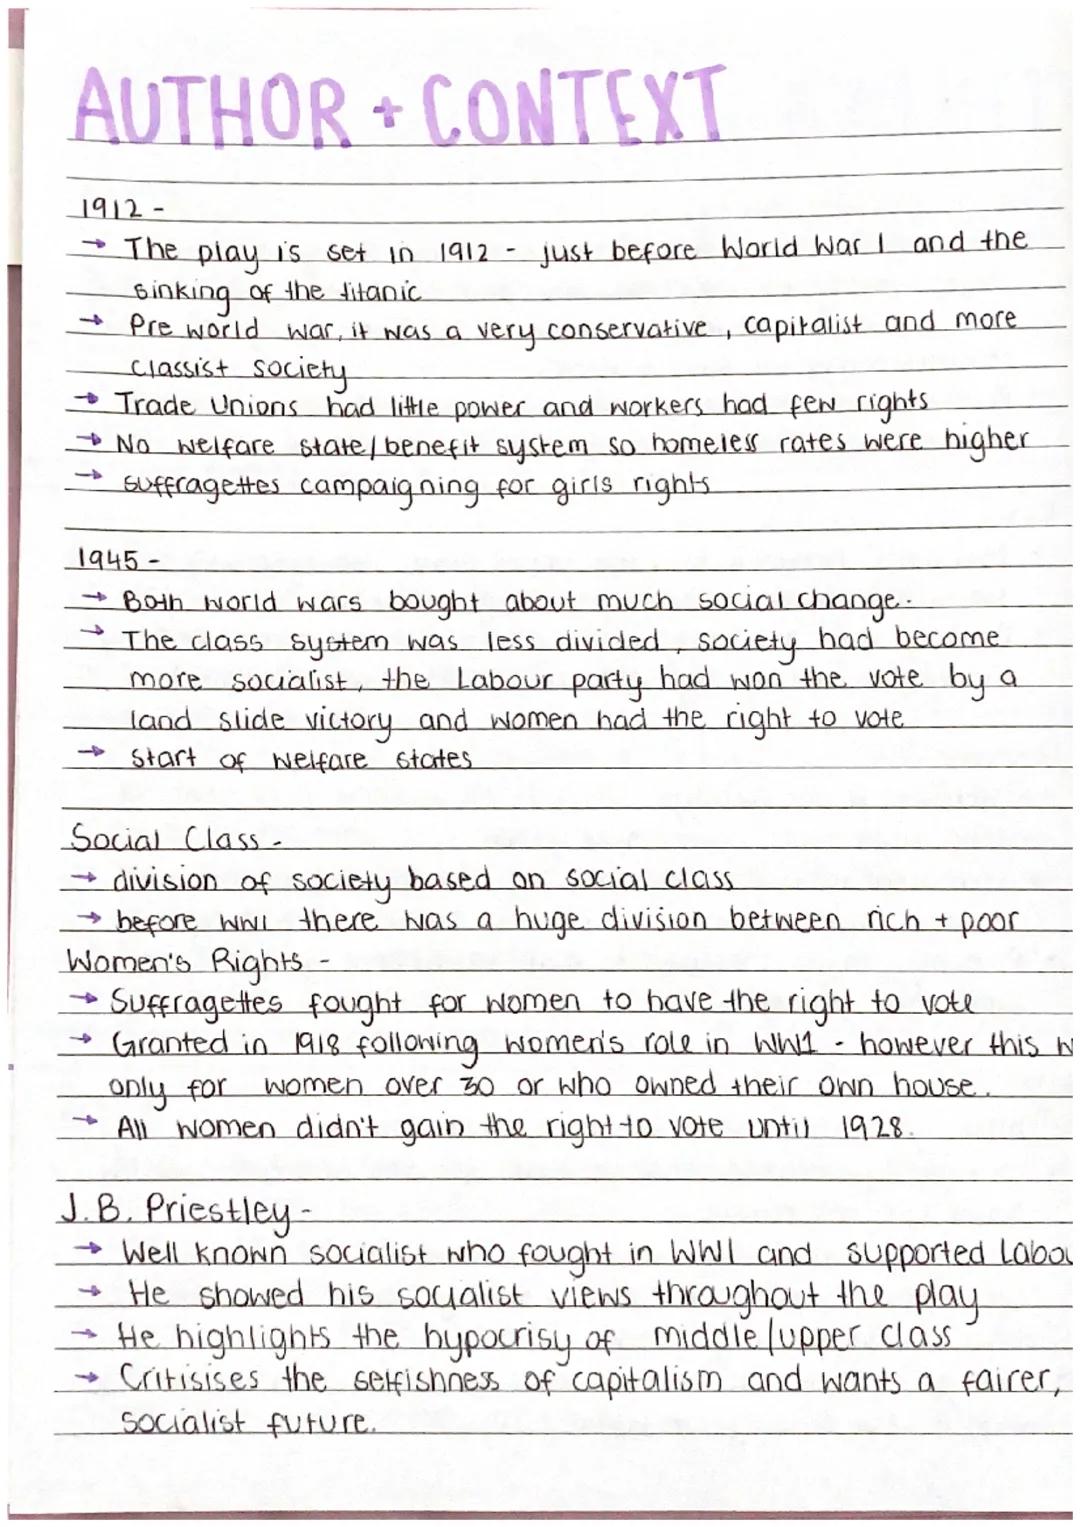 AUTHOR + CONTEXT
1912 -
→ The play is set in 1912 - just before World War I and the
sinking of the titanic
→ Pre world war, it was a very conservative, capitalist and more
classist society
→ Trade Unions had little power and workers had few rights
→ No welfare state/benefit system so homeless rates were higher
→ suffragettes campaigning for girls rights
1945 -
→ Both world wars bought about much social change.
→ The class system was less divided, society had become
more socialist, the Labour party had won the vote by a
land slide victory and women had the right to vote
→ Start of welfare states
Social Class -
→ division of society based on social class
→ before WWI there was a huge division between rich + poor
Women's Rights -
→ Suffragettes fought for women to have the right to vote
→ Granted in 1918 following women's role in WW1 - however this w
only for women over 30 or who owned their own house.
→ All women didn't gain the right to vote until 1928.
J.B. Priestley -
→ Well known socialist who fought in WWI and supported Labou
→ He showed his socialist views throughout the play
→ He highlights the hypocrisy of middle/upper class
→ Critisises the selfishness of capitalism and wants a fairer,
socialist future.